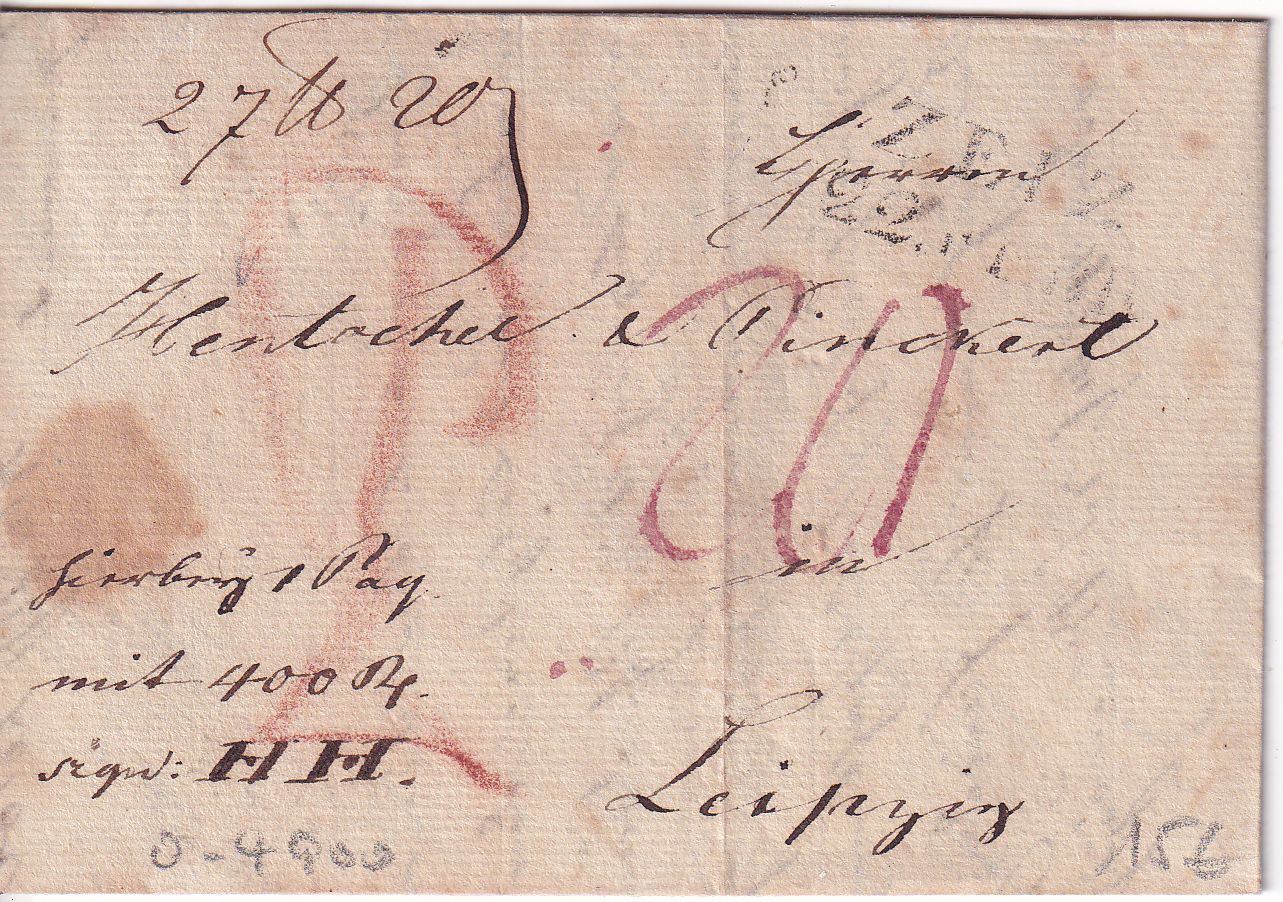 27 ℔ 20
ZEITZ
22.
Herren
Hentschel & Pinckert
20
in
hierbey 1 Paq.
mit 400 Rt.
sign: HH.
Leipzig
0-4900
156